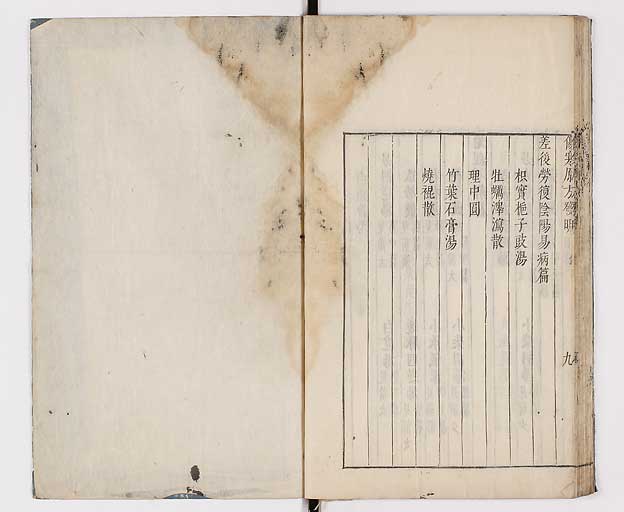 差後勞復陰陽易病篇
枳實梔子豉湯
牡蠣澤瀉散
理中圓
竹葉石膏湯
燒裩散
九